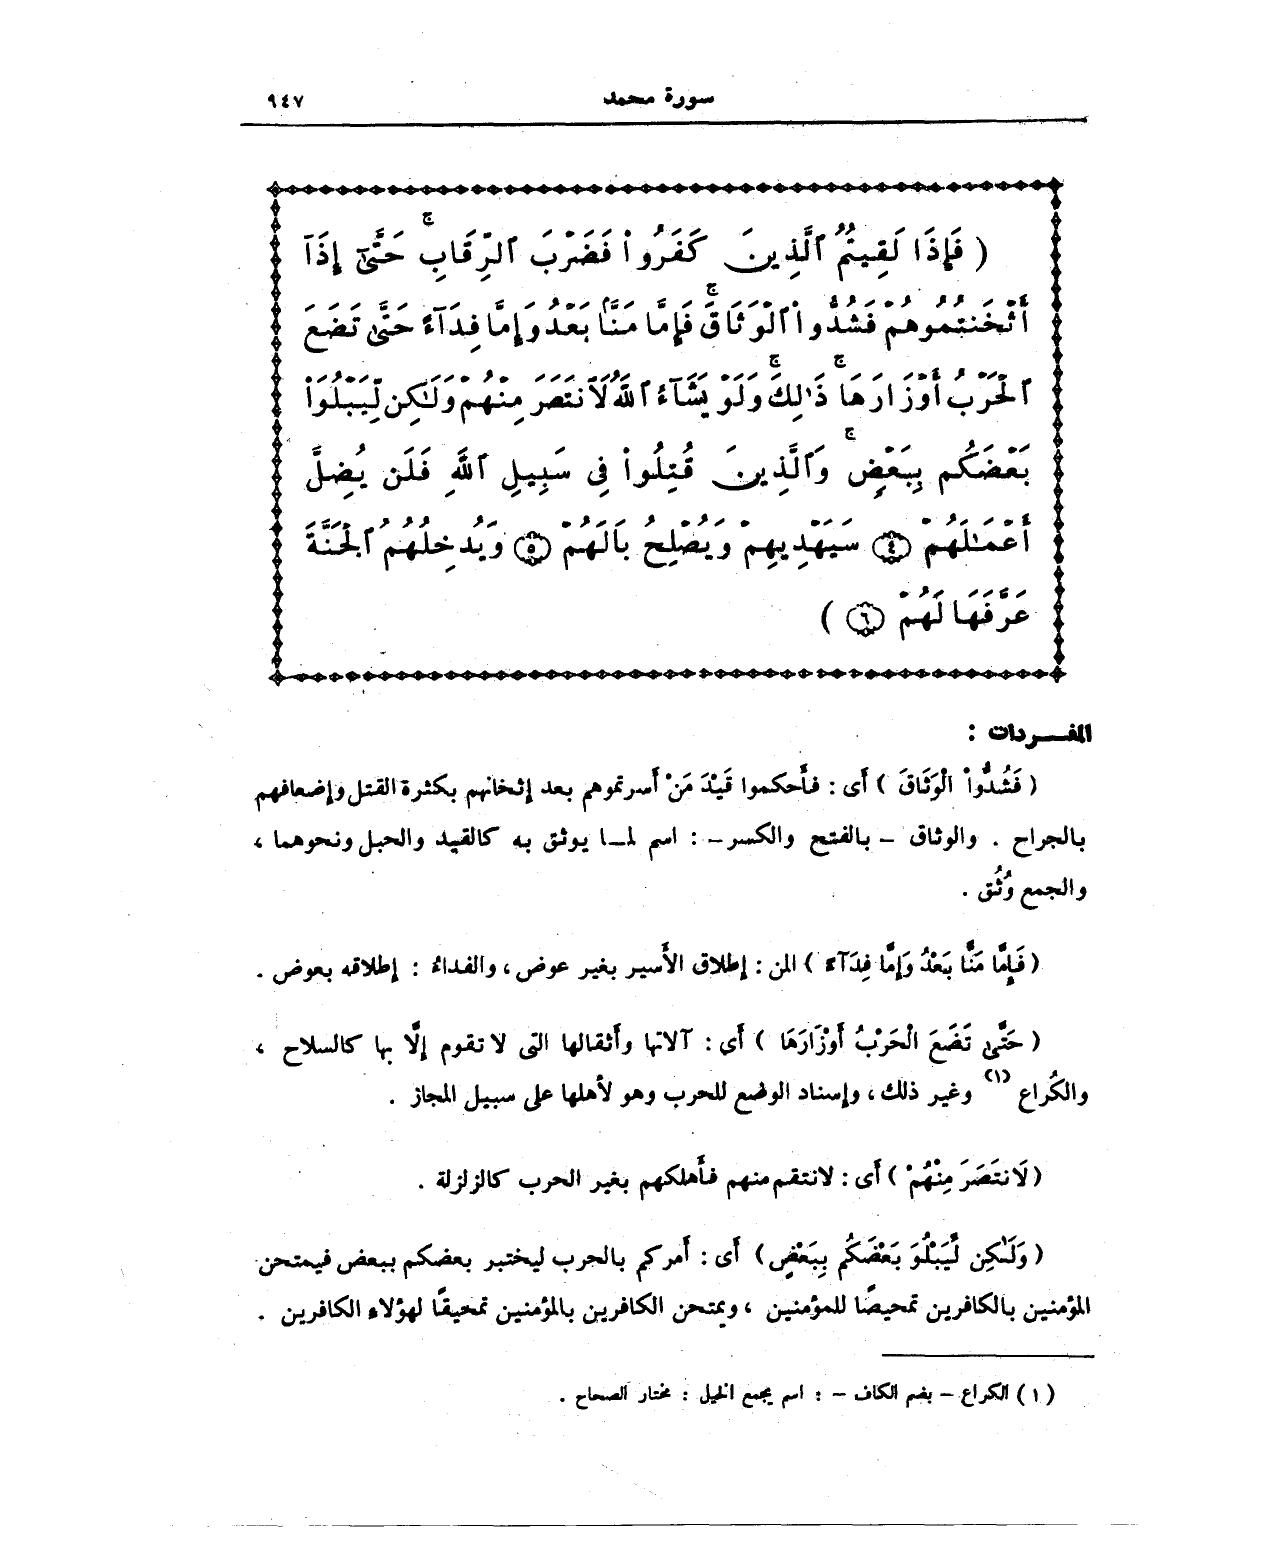 سورة محمد ٩٤٧
( فَإِذَا لَقِيتُمُ ٱلَّذِينَ كَفَرُواْ فَضَرْبَ ٱلرِّقَابِ ۚ حَتَّىٰٓ إِذَآ
أَثْخَنتُمُوهُمْ فَشُدُّواْ ٱلْوَثَاقَ ۚ فَإِمَّا مَنَّۢا بَعْدُ وَإِمَّا فِدَآءً حَتَّىٰ تَضَعَ
ٱلْحَرْبُ أَوْزَارَهَا ۚ ذَٰلِكَ ۚ وَلَوْ يَشَآءُ ٱللَّهُ لَٱنتَصَرَ مِنْهُمْ وَلَٰكِن لِّيَبْلُوَاْ
بَعْضَكُم بِبَعْضٍ ۚ وَٱلَّذِينَ قُتِلُواْ فِي سَبِيلِ ٱللَّهِ فَلَن يُضِلَّ
أَعْمَٰلَهُمْ ٤ سَيَهْدِيهِمْ وَيُصْلِحُ بَالَهُمْ ٥ وَيُدْخِلُهُمُ ٱلْجَنَّةَ
عَرَّفَهَا لَهُمْ ٦ )
المفـردات :
( فَشُدُّواْ الْوَثَاقَ ) أى : فأحكموا قَيْدَ مَنْ أسرتموهم بعد إثخانهم بكثرة القتل وإضعافهم
بالجراح . والوثاق – بالفتح والكسر – : اسم لمـا يوثق به كالقيد والحبل ونحوهما ،
والجمع وُثُق .
( فَإِمَّا مَنًّا بَعْدُ وَإِمَّا فِدَآءً ) المن : إطلاق الأسير بغير عوض ، والفداءُ : إطلاقه بعوض .
( حَتَّىٰ تَضَعَ الْحَرْبُ أَوْزَارَهَا ) أى : آلاتها وأثقالها التى لا تقوم إلَّا بها كالسلاح ،
والكُراع (١) وغير ذلك ، وإسناد الوضع للحرب وهو لأهلها على سبيل المجاز .
( لَانتَصَرَ مِنْهُمْ ) أى : لانتقم منهم فأهلكهم بغير الحرب كالزلزلة .
( وَلَٰكِن لِّيَبْلُوَ بَعْضَكُم بِبَعْضٍ ) أى : أمركم بالحرب ليختبر بعضكم ببعض فيمتحن
المؤمنين بالكافرين تمحيصًا للمؤمنين ، ويمتحن الكافرين بالمؤمنين تمحيقًا لهؤلاء الكافرين .
( ١ ) الكراع – بضم الكاف – : اسم يجمع الخيل : مختار الصحاح .